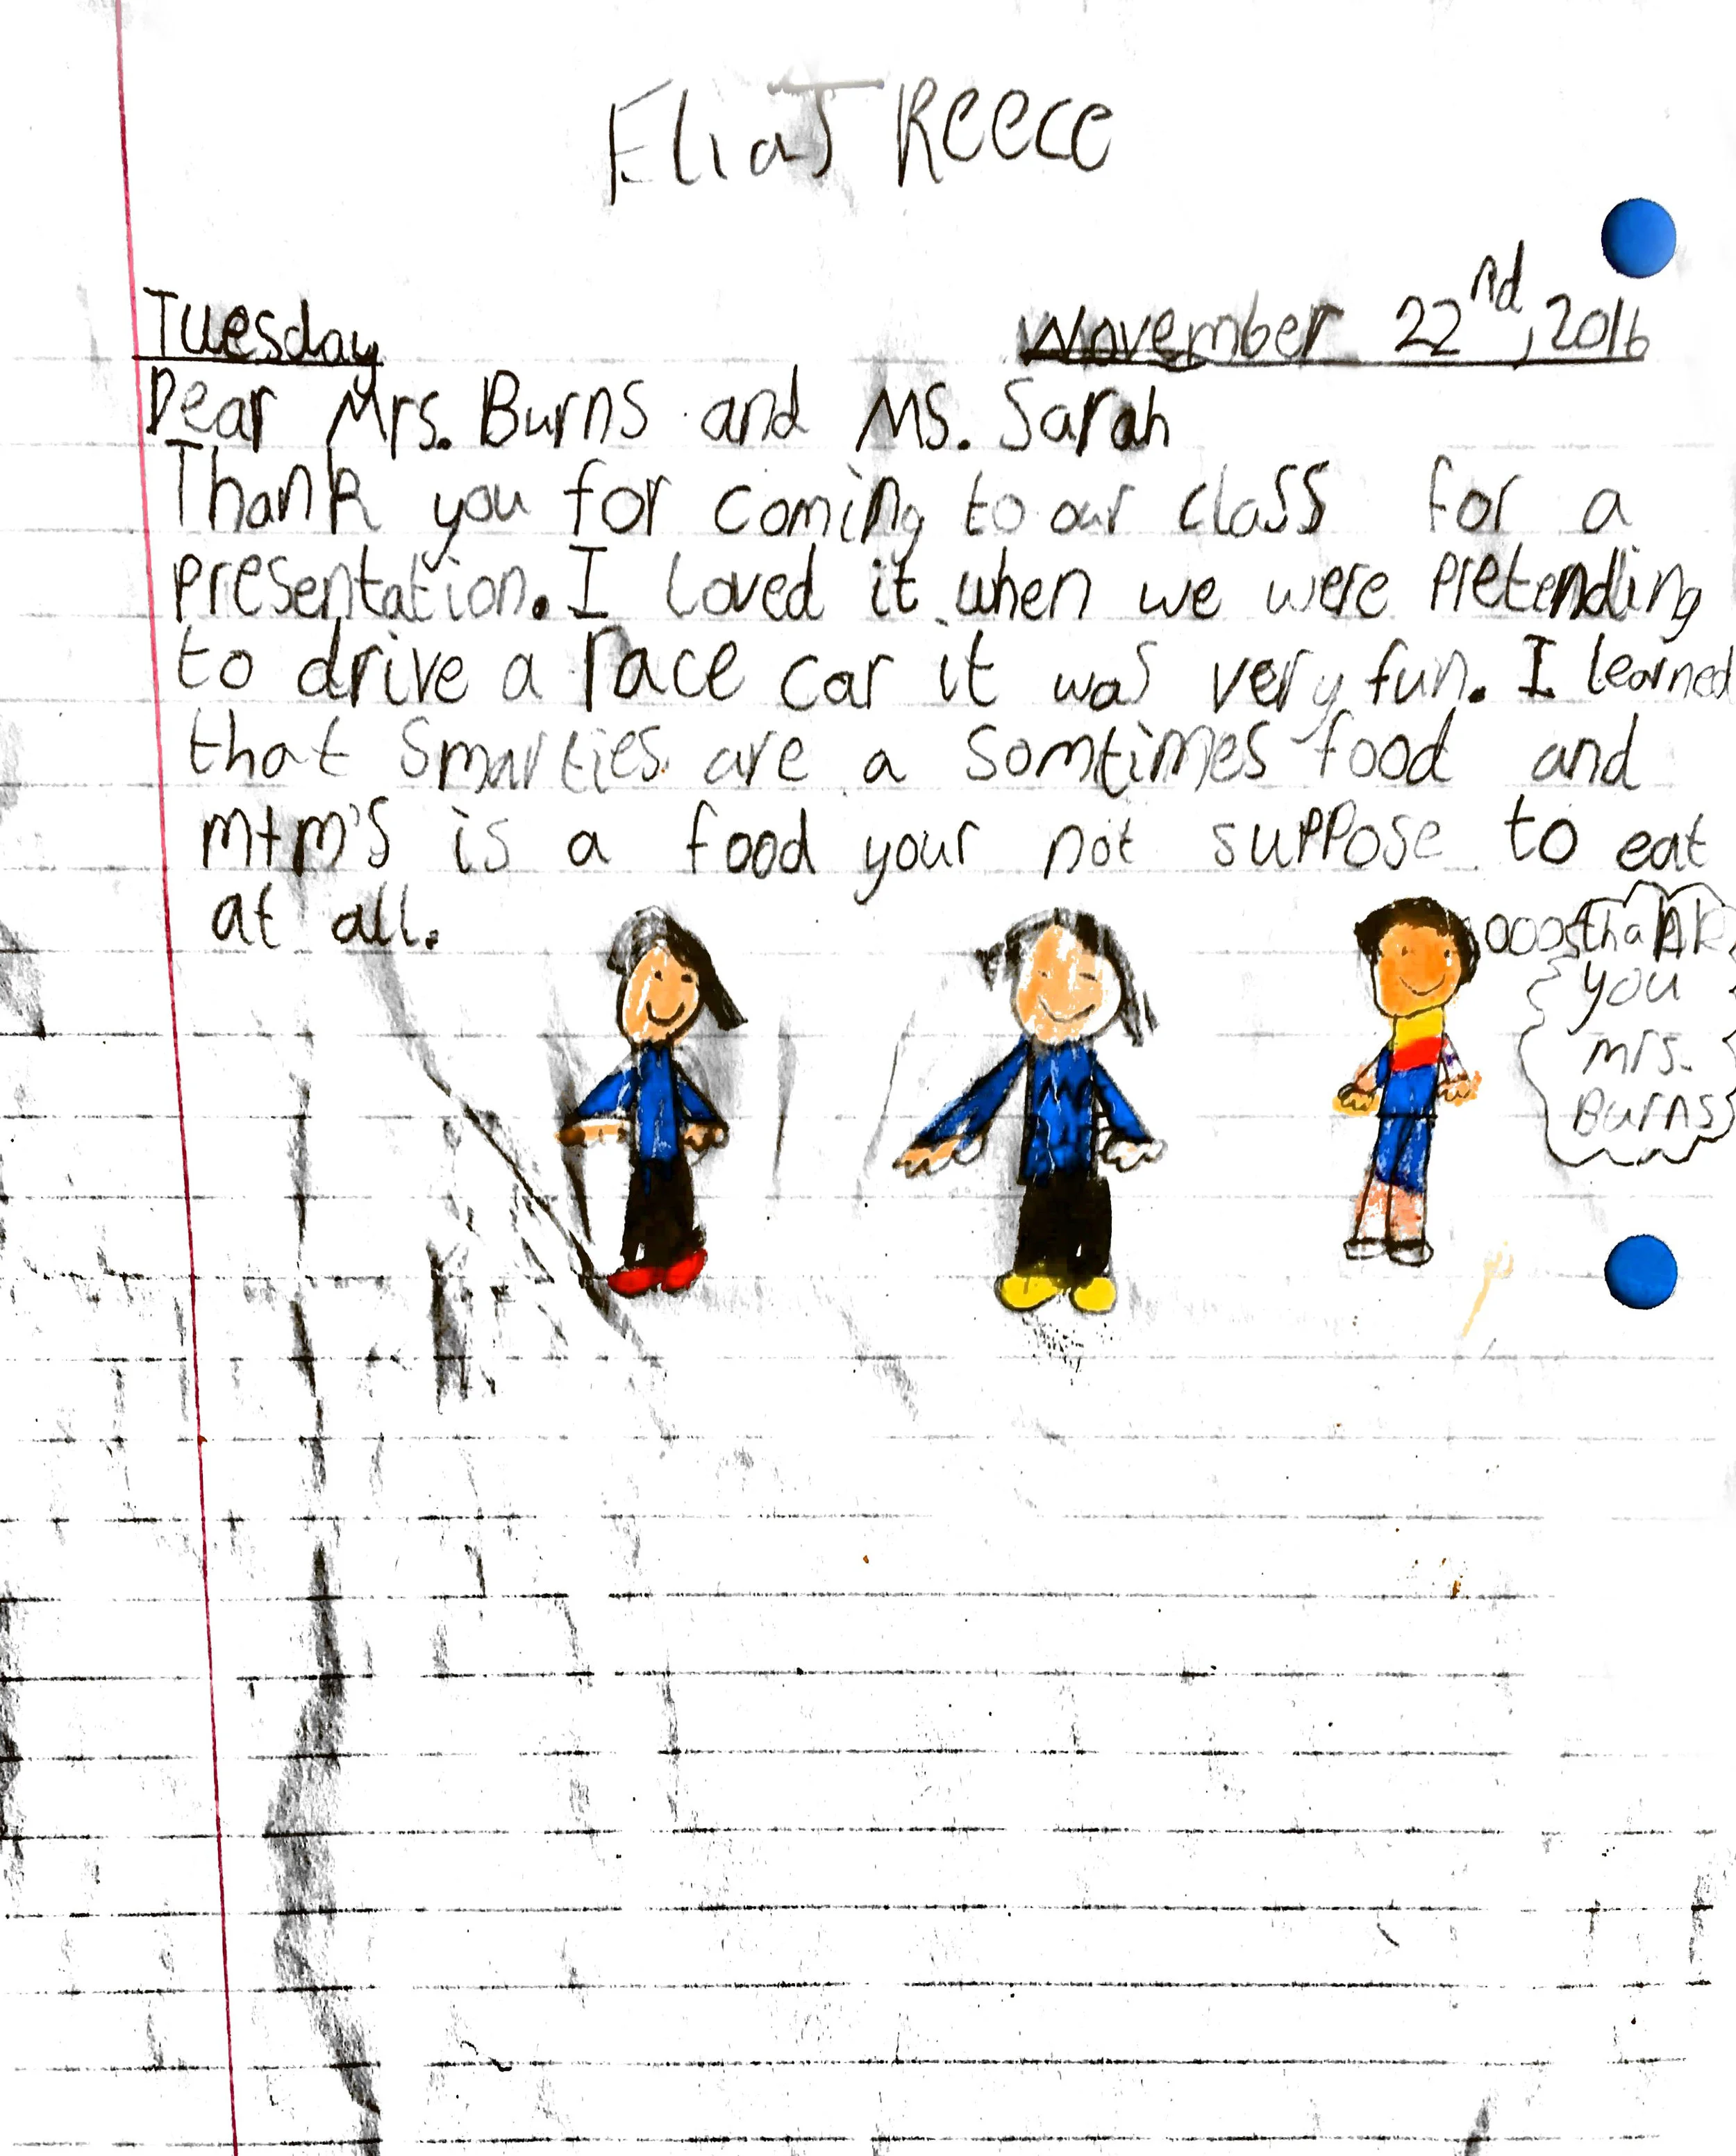 Elias Reece
Tuesday November 22nd, 2016
Dear Mrs. Burns and Ms. Sarah
Thank you for coming to our class for a
presentation. I loved it when we were pretending
to drive a race car it was very fun. I learned
that Smarties are a somtimes food and
m+m's is a food your not suppose to eat
at all.
thank
you
mrs.
Burns